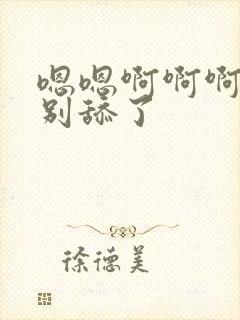 嗯嗯啊啊啊
别舔了
徐德美